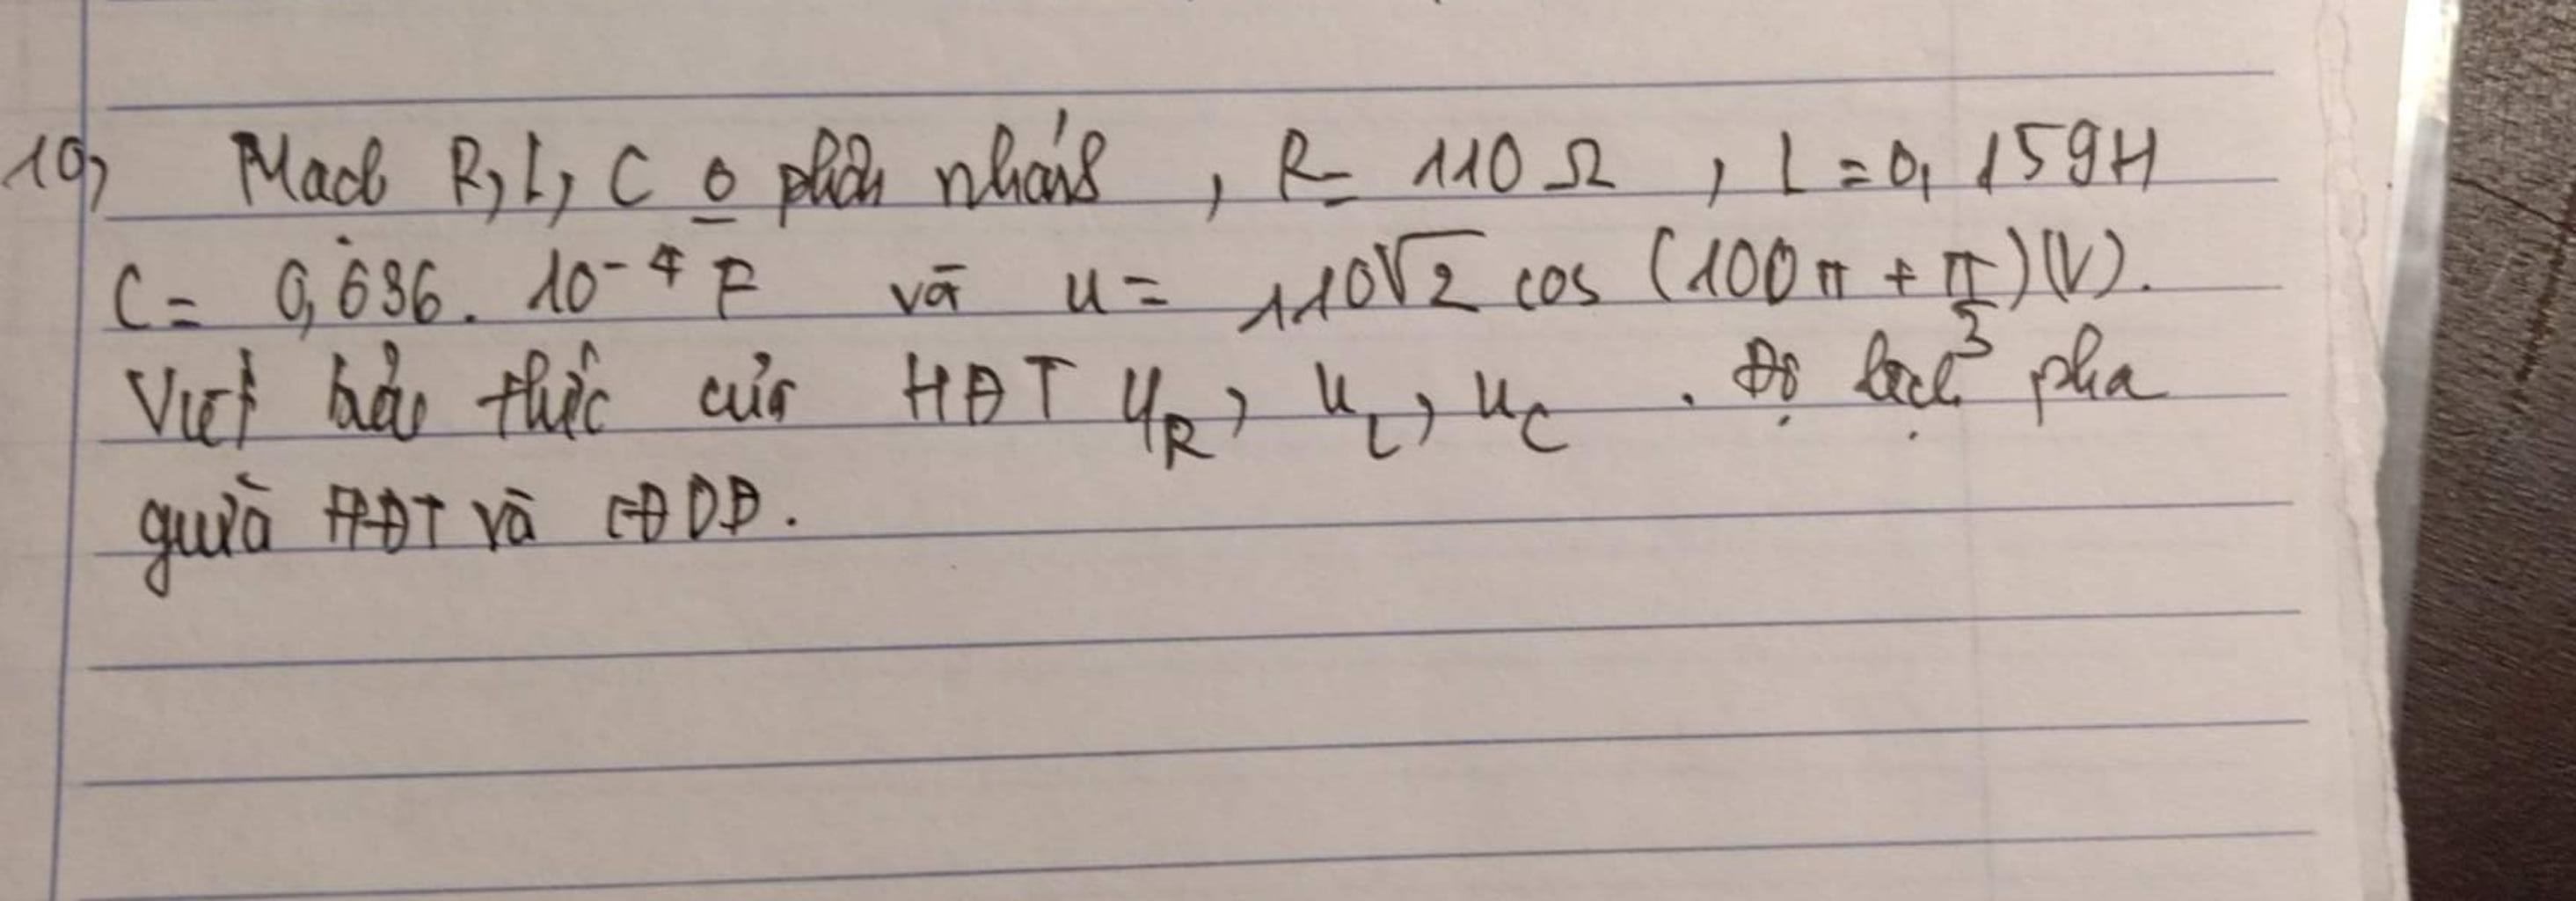 10, Mạch R, L, C o phân nhánh, R = 110 Ω, L = 0,159H
C = 0,636. 10⁻⁴ F và u = 110√2 cos (100π + π/3)(V).
Viết biểu thức của HĐT u_R, u_L, u_C. Độ lệch pha
giữa HĐT và CĐDĐ.